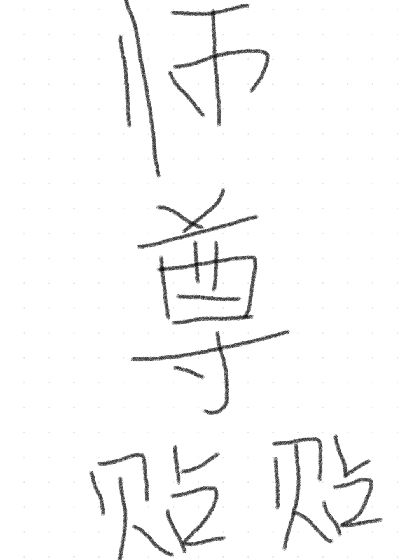 师
尊
贴贴